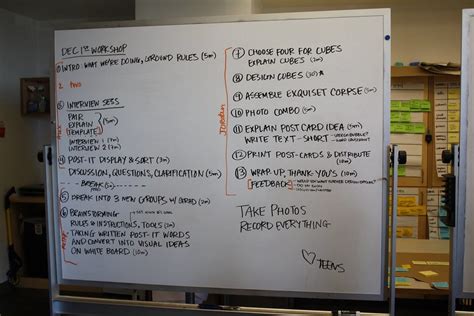 DEC 1ST WORKSHOP
① INTRO: WHAT WE'RE DOING, GROUND RULES (5m)
2 TWO
③ INTERVIEW SETS
PAIR
EXPLAIN
TEMPLATE
(5m)
INTERVIEW 1 (7m)
INTERVIEW 2 (7m)
④ POST-IT DISPLAY & SORT (7m)
DISCUSSION, QUESTIONS, CLARIFICATION (5m)
BREAK (5m)
⑤ BREAK INTO 3 NEW GROUPS
⑥ BRAINSTORMING
RULES & INSTRUCTIONS, TOOLS (2m)
TAKING WRITTEN POST-IT WORDS
AND CONVERT INTO VISUAL IDEAS
ON WHITE BOARD (10m)
⑦ CHOOSE FOUR FOR CUBES
EXPLAIN CUBES (2m)
⑧ DESIGN CUBES (10)
⑨ ASSEMBLE EXQUISET CORPSE (2m)
⑩ PHOTO COMBO (2m)
⑪ EXPLAIN POST CARD IDEA (5m)
WRITE TEXT - SHORT
⑫ PRINT POST-CARDS & DISTRIBUTE
(10m)
⑬ WRAP UP, THANK YOU'S (10m)
[FEEDBACK]
TAKE PHOTOS
RECORD EVERYTHING
♡ TEENS